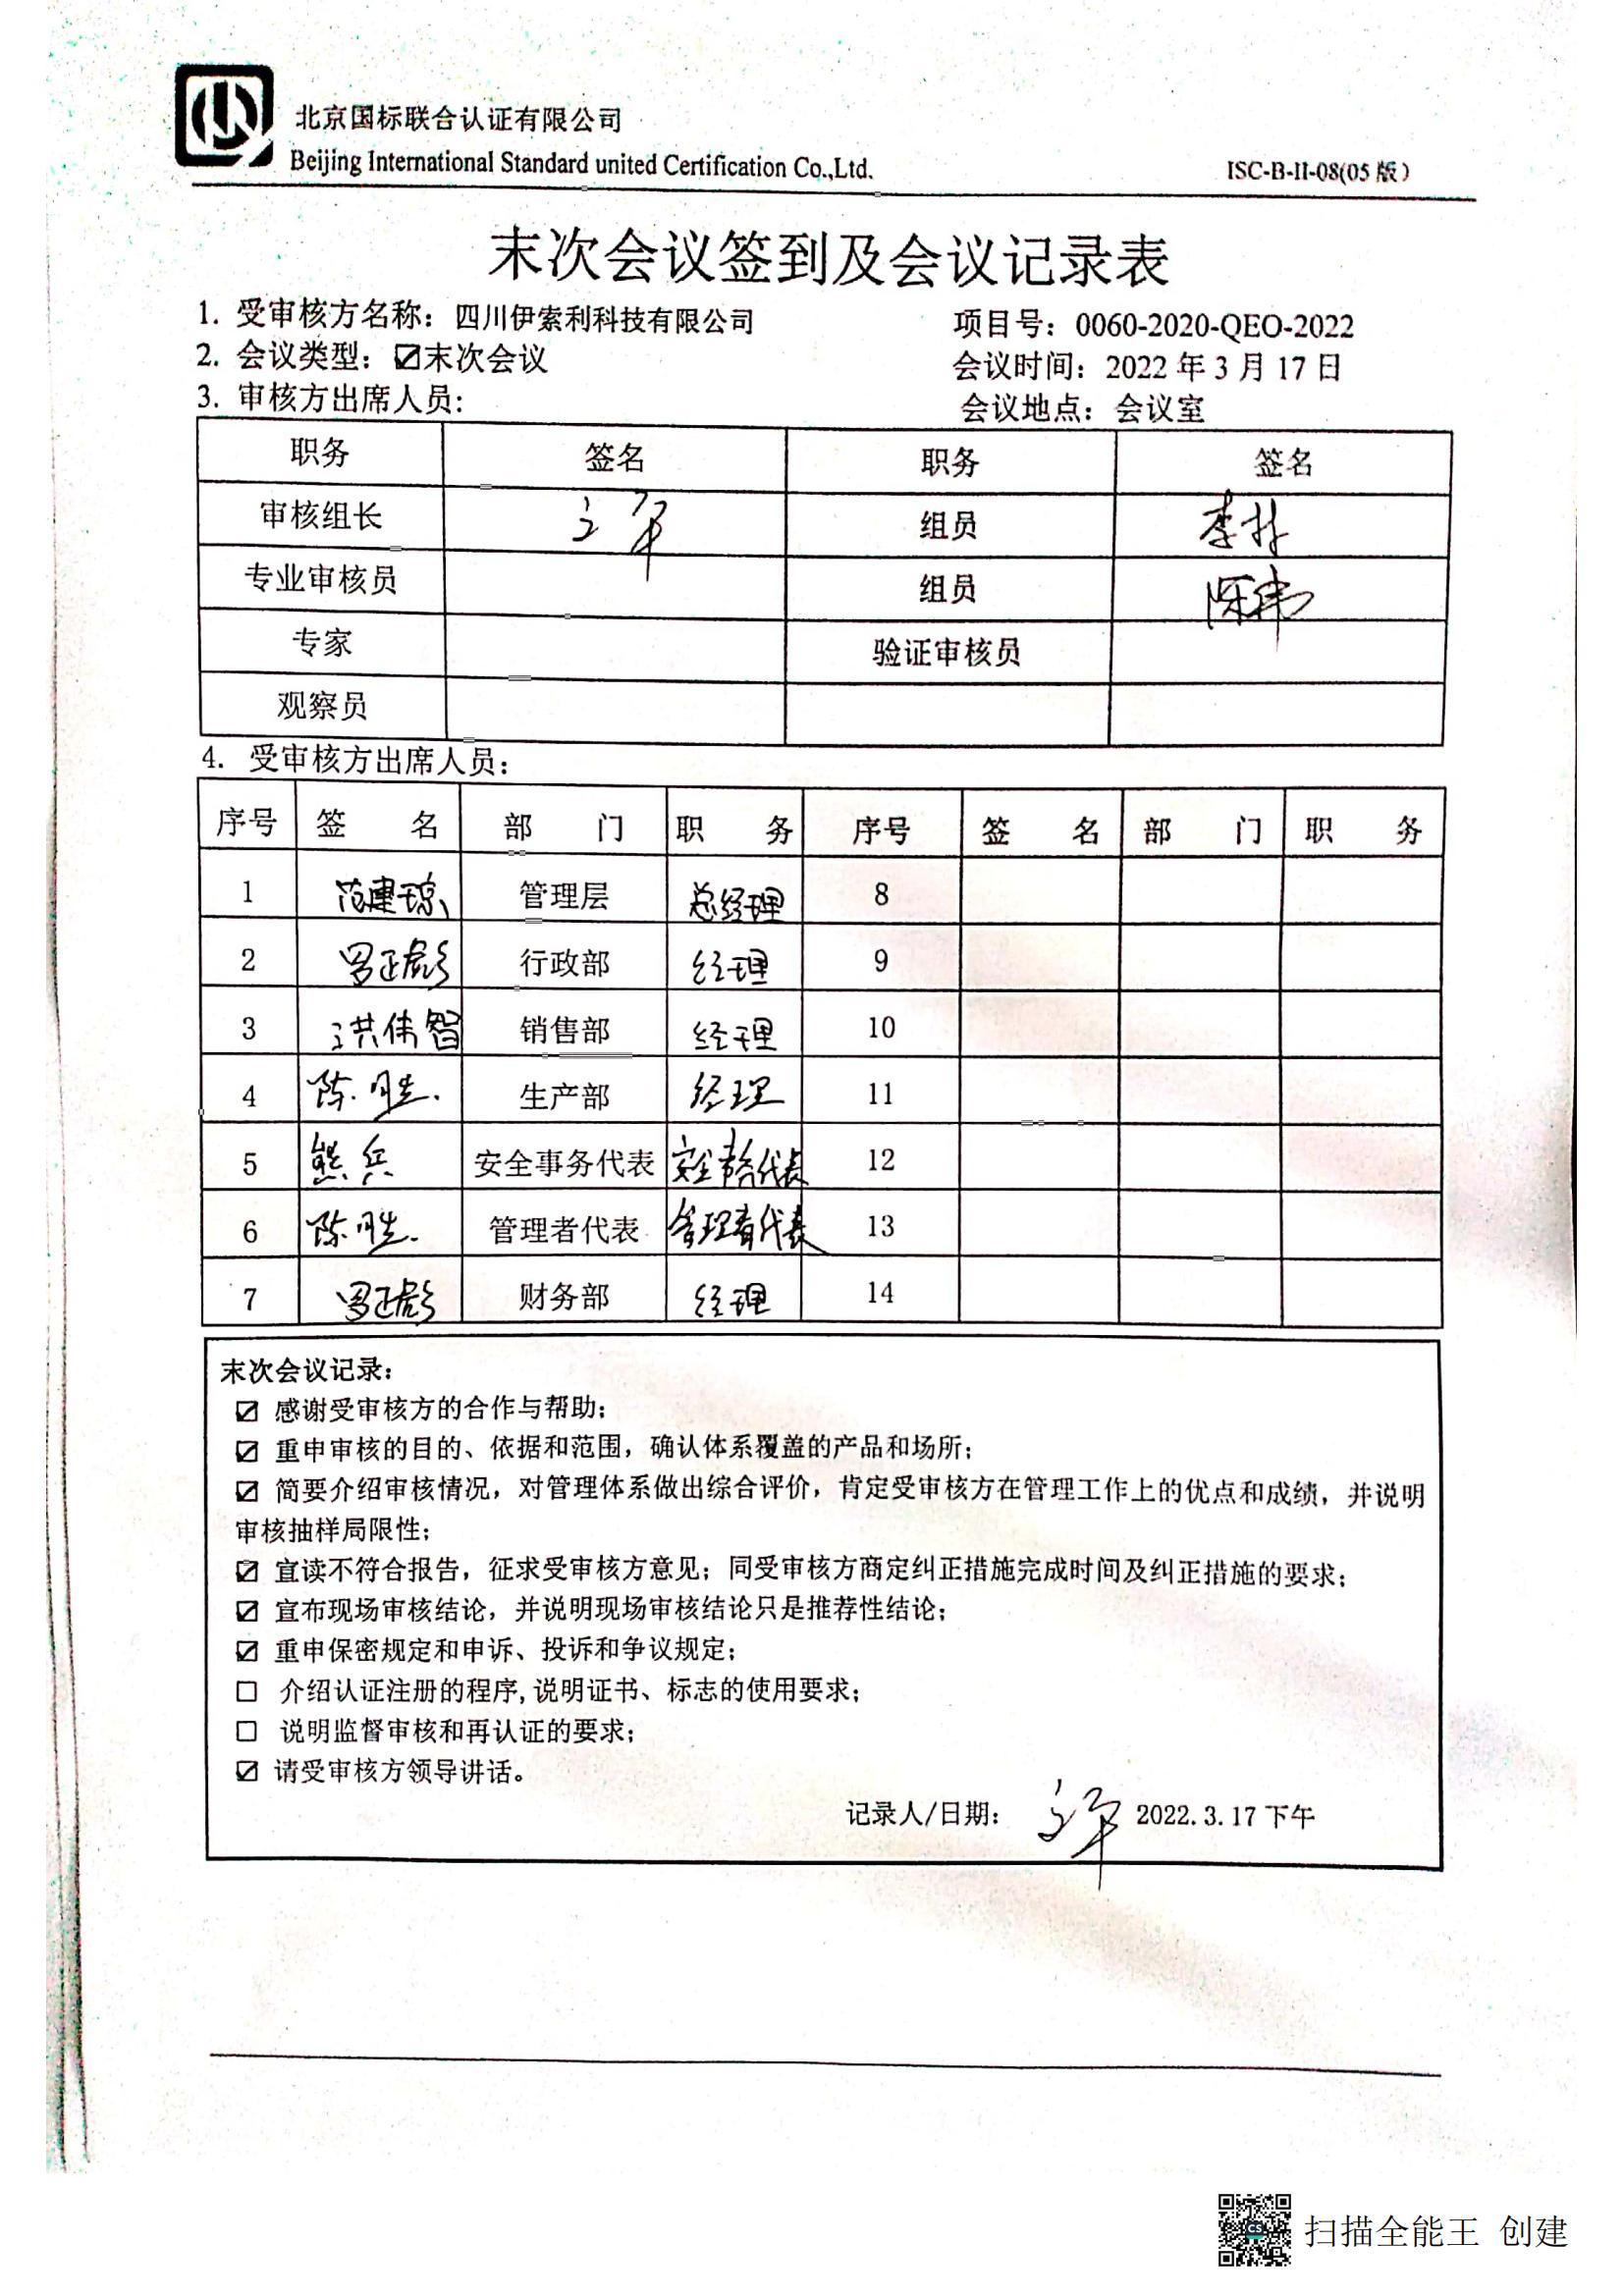 北京国标联合认证有限公司
Beijing International Standard united Certification Co.,Ltd.
ISC-B-II-08(05 版)
末次会议签到及会议记录表
1. 受审核方名称：四川伊索利科技有限公司 项目号：0060-2020-QEO-2022
2. 会议类型：☑末次会议 会议时间：2022 年 3 月 17 日
3. 审核方出席人员： 会议地点：会议室
职务 签名 职务 签名
审核组长 组员 李林
专业审核员 组员 陈伟
专家 验证审核员
观察员
4. 受审核方出席人员：
序号 签 名 部 门 职 务 序号 签 名 部 门 职 务
1 范建琼 管理层 总经理 8
2 罗正彪 行政部 经理 9
3 洪伟智 销售部 经理 10
4 陈 生产部 经理 11
5 熊兵 安全事务代表 安全事务代表 12
6 陈 管理者代表 管理者代表 13
7 罗正彪 财务部 经理 14
末次会议记录：
☑ 感谢受审核方的合作与帮助；
☑ 重申审核的目的、依据和范围，确认体系覆盖的产品和场所；
☑ 简要介绍审核情况，对管理体系做出综合评价，肯定受审核方在管理工作上的优点和成绩，并说明
审核抽样局限性；
☑ 宣读不符合报告，征求受审核方意见；同受审核方商定纠正措施完成时间及纠正措施的要求；
☑ 宣布现场审核结论，并说明现场审核结论只是推荐性结论；
☑ 重申保密规定和申诉、投诉和争议规定；
☐ 介绍认证注册的程序,说明证书、标志的使用要求；
☐ 说明监督审核和再认证的要求；
☑ 请受审核方领导讲话。
记录人/日期： 2022.3.17 下午
CS
扫描全能王 创建